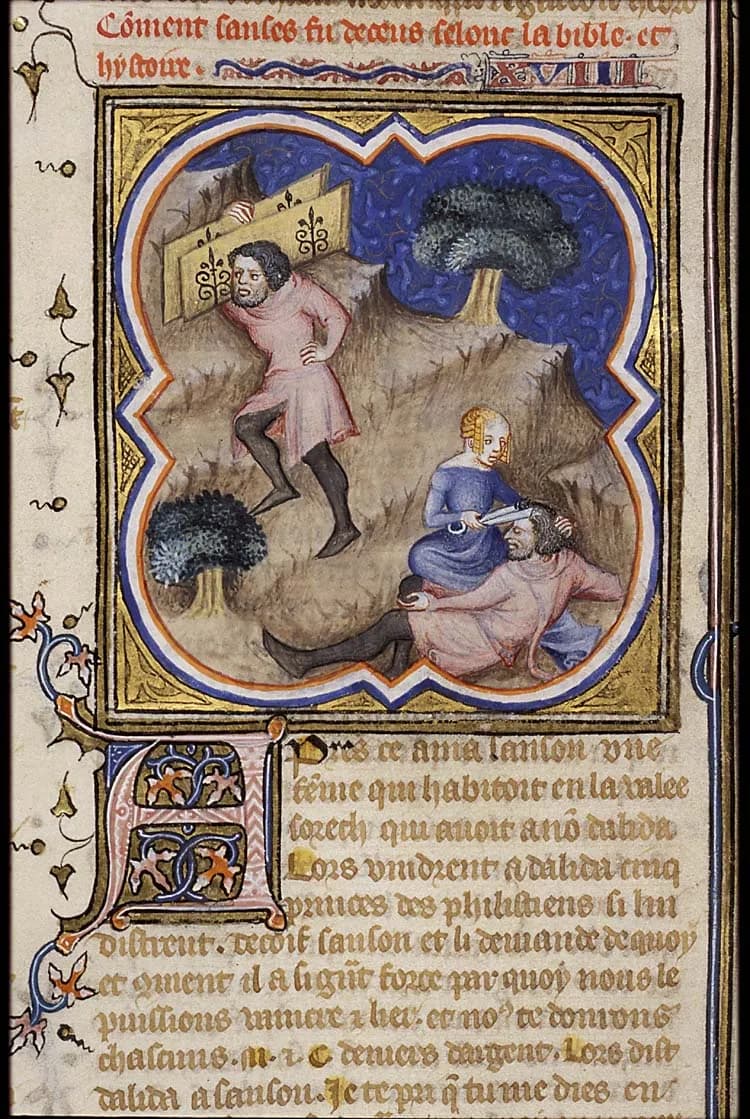 Cōment sanses fu deceus selonc la bible et
hystoire. XVIII
APres ce ama sanson une
feme qui habitoit en la valee
sorech qui avoit a nō dalida
Lors vindrent a dalida cinq
princes des philistiens si lui
distrent. decoif sanson et li demande de quoy
et 9ment il a si gñt force par quoy nous le
puissions vaincre 2 lier. et no9 te donrons
chascuns. M. 2 C deniers dargent. Lors dist
dalida a sanson. Je te pri q̄ tu me dies en